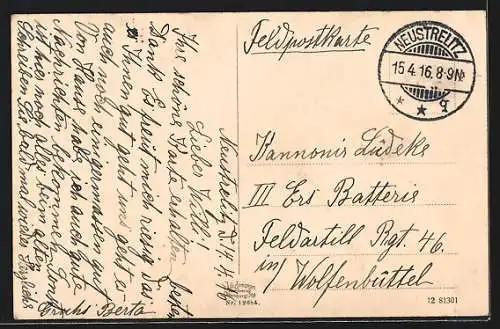 Feldpostkarte
NEUSTRELITZ
15.4.16. 8-9N
* * g
Kannonir Ludeke
III Ers Batterie
Feldartill Rgt. 46
in/ Wolfenbüttel
Neustrelitz, d. 14.4.16
Lieber Willi!
Ihre schöne Karte erhalten, besten
Dank. Es freut mich riesig das
es Ihnen gut geht uns geht es
auch noch einigermassen gut
Von Haus habe ich auch gute
Nachrichten bekommen. Sonst
ist hier noch alles beim alten.
Schreiben Sie bald mal wieder. Herzliche
Gruß Berta
Nr. 12684.
12 81301